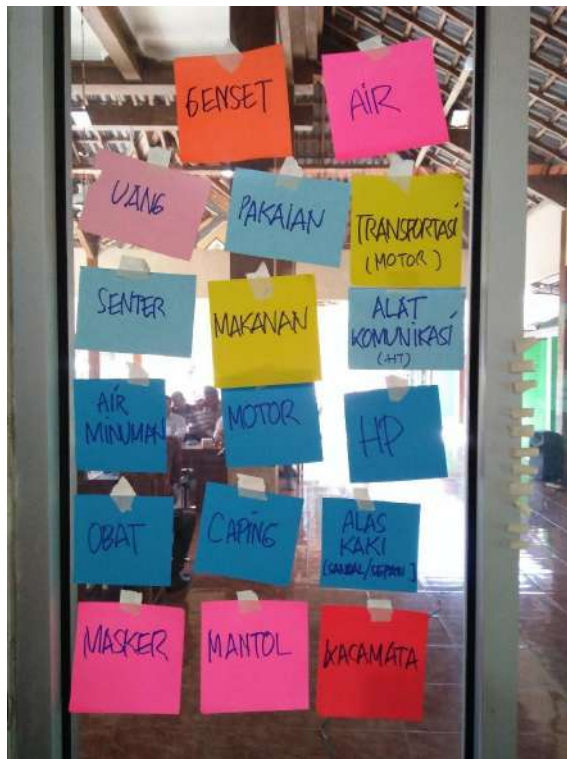 GENSET
AIR
UANG
PAKAIAN
TRANSPORTASI
(MOTOR)
SENTER
MAKANAN
ALAT
KOMUNIKASI
(HT)
AIR
MINUMAN
MOTOR
HP
OBAT
CAPING
ALAS
KAKI
MASKER
MANTOL
KACAMATA